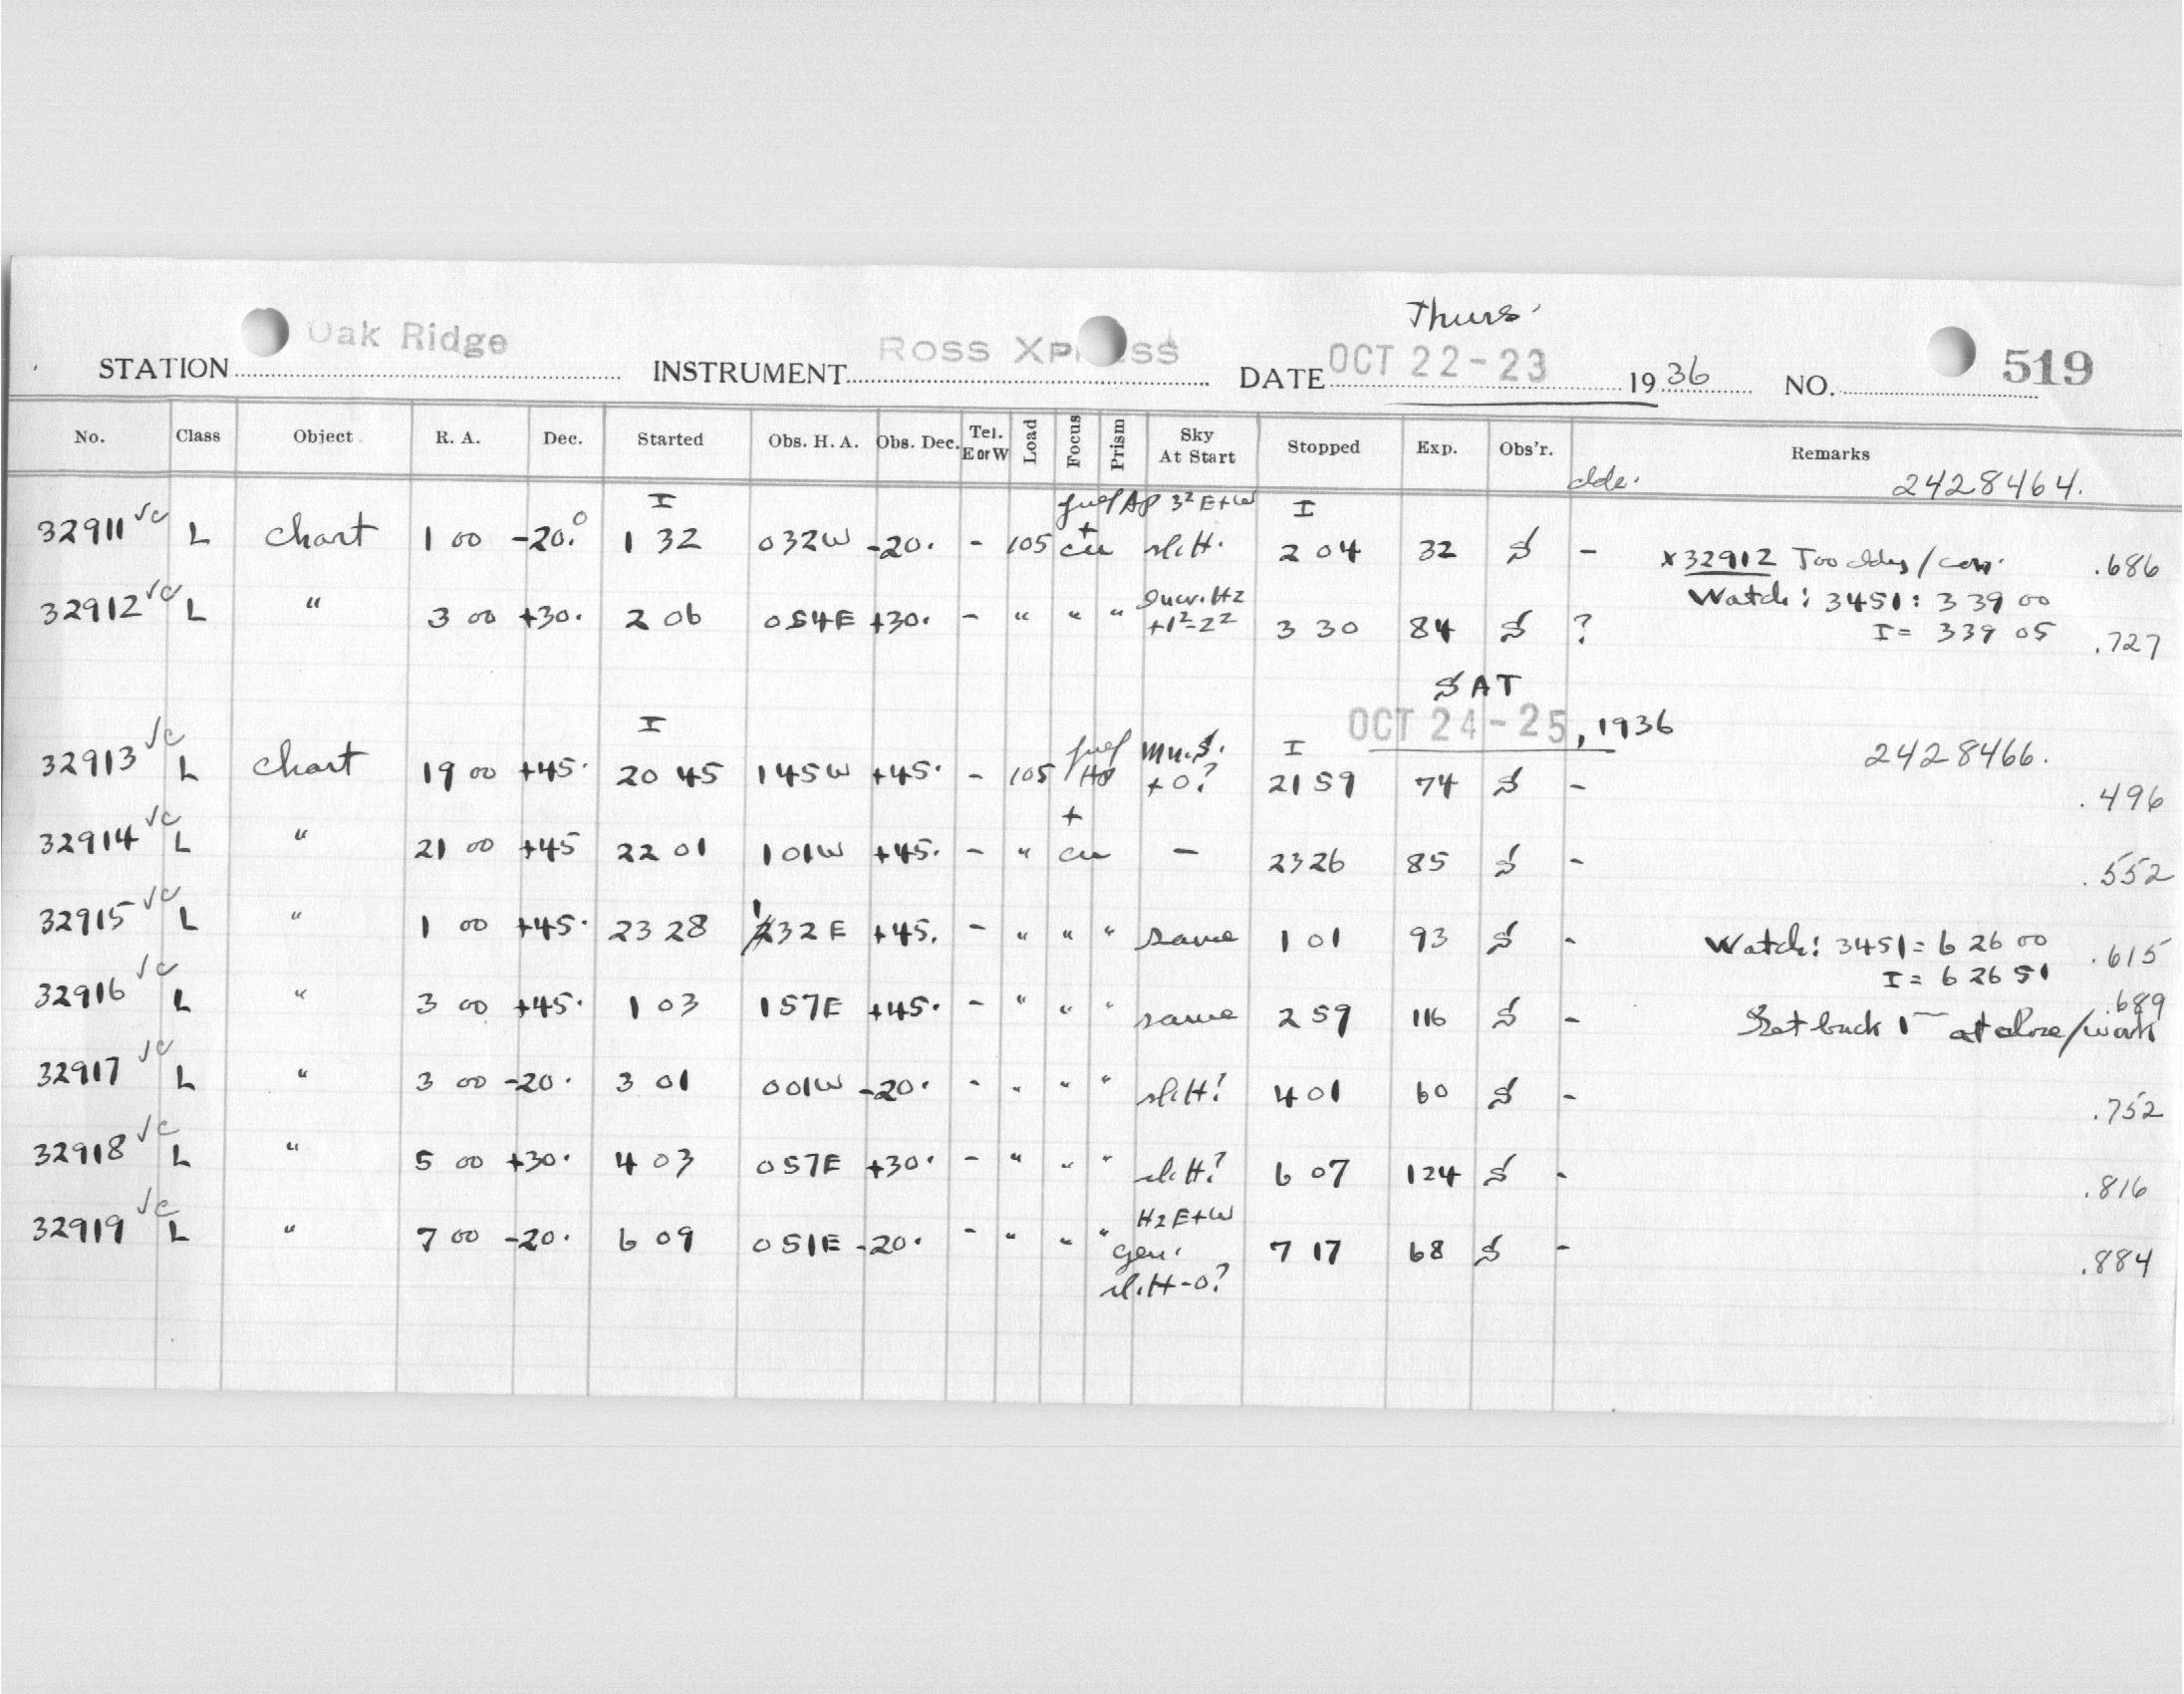 Thurs.
STATION Oak Ridge INSTRUMENT ROSS XP SS DATE OCT 22-23 1936 NO. 519
No. Class Object R. A. Dec. Started Obs. H. A. Obs. Dec. Tel. E or W Load Focus Prism Sky At Start Stopped Exp. Obs'r. Remarks
2428464.
I I
32911 L chart 1 00 -20.° 1 32 0 32W -20. - 105 + cu sl.H. 2 04 32 S - x32912 .686
32912 L " 3 00 +30. 2 06 0 54E +30. - " " " +1²-2² 3 30 84 S ? Watch: 3451: 3 39 00
I = 3 39 05 .727
SAT
OCT 24-25, 1936
I I 2428466.
32913 L chart 19 00 +45. 20 45 1 45W +45. - 105 +0? 21 59 74 S - .496
32914 L " 21 00 +45 22 01 1 01W +45. - " + cu - 23 26 85 S - .552
32915 L " 1 00 +45. 23 28 1 32E +45. - " " " same 1 01 93 S - Watch: 3451 = 6 26 00 .615
I = 6 26 51
32916 L " 3 00 +45. 1 03 1 57E +45. - " " " same 2 59 116 S - Set back 1 at close/work .689
32917 L " 3 00 -20. 3 01 0 01W -20. - " " " sl.H? 4 01 60 S - .752
32918 L " 5 00 +30. 4 03 0 57E +30. - " " " sl.H? 6 07 124 S - .816
32919 L " 7 00 -20. 6 09 0 51E -20. - " " " H2 E+W gen. sl.H-0? 7 17 68 S - .884